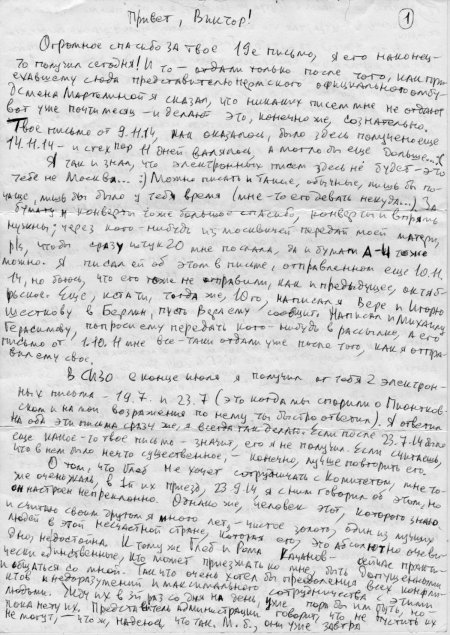 Привет, Виктор!
1
Огромное спасибо за твое 19е письмо, я его наконец-
то получил сегодня! И то – отдали только после того, как при-
ехавшему сюда представителю пермского официального омбу-
дсмена Марголиной я сказал, что никаких писем мне не отдают
вот уже почти месяц – и делают это, конечно же, сознательно.
Твое письмо от 9.11.14, как оказалось, было здесь получено еще
14.11.14 – и с тех пор 11 дней валялось, а могло бы еще больше...
Я так и знал, что электронных писем здесь не будет – это
тебе не Москва... :) Можно писать и такие, обычные, лишь бы по-
чаще, лишь бы было у тебя время (мне-то его девать некуда...) За
бумагу и конверты тоже большое спасибо, конверты и впрямь
нужны; через кого-нибудь из москвичей передай моей матери,
чтобы сразу штук 20 мне послала, да и бумаги А-4 тоже
можно. Я писал ей об этом в письме, отправленном еще 10.11.
14, но боюсь, что его тоже не отправили, как и предыдущее, октяб-
рьское. Еще, кстати, тогда же, 10го, написал я Вере и Игорю
Шесткову в Берлин, пусть Вере сообщит. Написал и Михаилу
Герасимову, попроси ему передать кого-нибудь в рассылке, а его
письмо от 1.10.11 мне все-таки отдали уже после того, как я отпра-
вил ему свое.
В СИЗО с конце июля я получил от тебя 2 электрон-
ных письма – 19.7. и 23.7 (это когда мы спорили о Пионтков-
ском и на мои возражения по нему ты быстро ответил). Я ответил
на оба эти письма сразу же, я всегда так делаю. Если после 23.7.14 было
еще какое-то твое письмо – значит, его я не получил. Если считаешь,
что в нем было нечто существенное, – конечно, лучше повторить его.
О том, что Глеб не хочет сотрудничать с Комитетом, мне то-
же очень жаль, в 1й их приезд, 23.9.14, я с ним говорил об этом, но
он настроен непреклонно. Однако же, человек этот, которого знаю
и считаю своим другом я много лет, – чистое золото, один из лучших
людей в этой несчастной стране, которая его, это абсолютно очеви-
дно, недостойна. К тому же Глеб и Рома Качанов – сейчас практи-
чески единственные, кто может приезжать ко мне, быть допущенными
и общаться со мной. Так что очень хотел бы преодоления всех конфли-
ктов и недоразумений и максимального сотрудничества с этими
людьми. Жду их в 3й раз со дня на день, уже пора бы им быть, но
пока нету их. Представитель администрации говорит, что не пустить их
не могут, – что ж, надеюсь, что так. М.б., они уже завтра